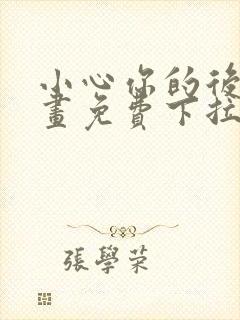 小心你的後
畫免費下拉
張學荣